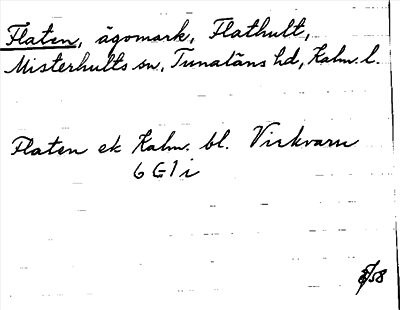 Flaten, ägomark, Flathult,
Misterhults sn, Tunaläns hd, Kalm. l.
Flaten ek Kalm. bl. Virkvarn
6 G 1 i
8/58